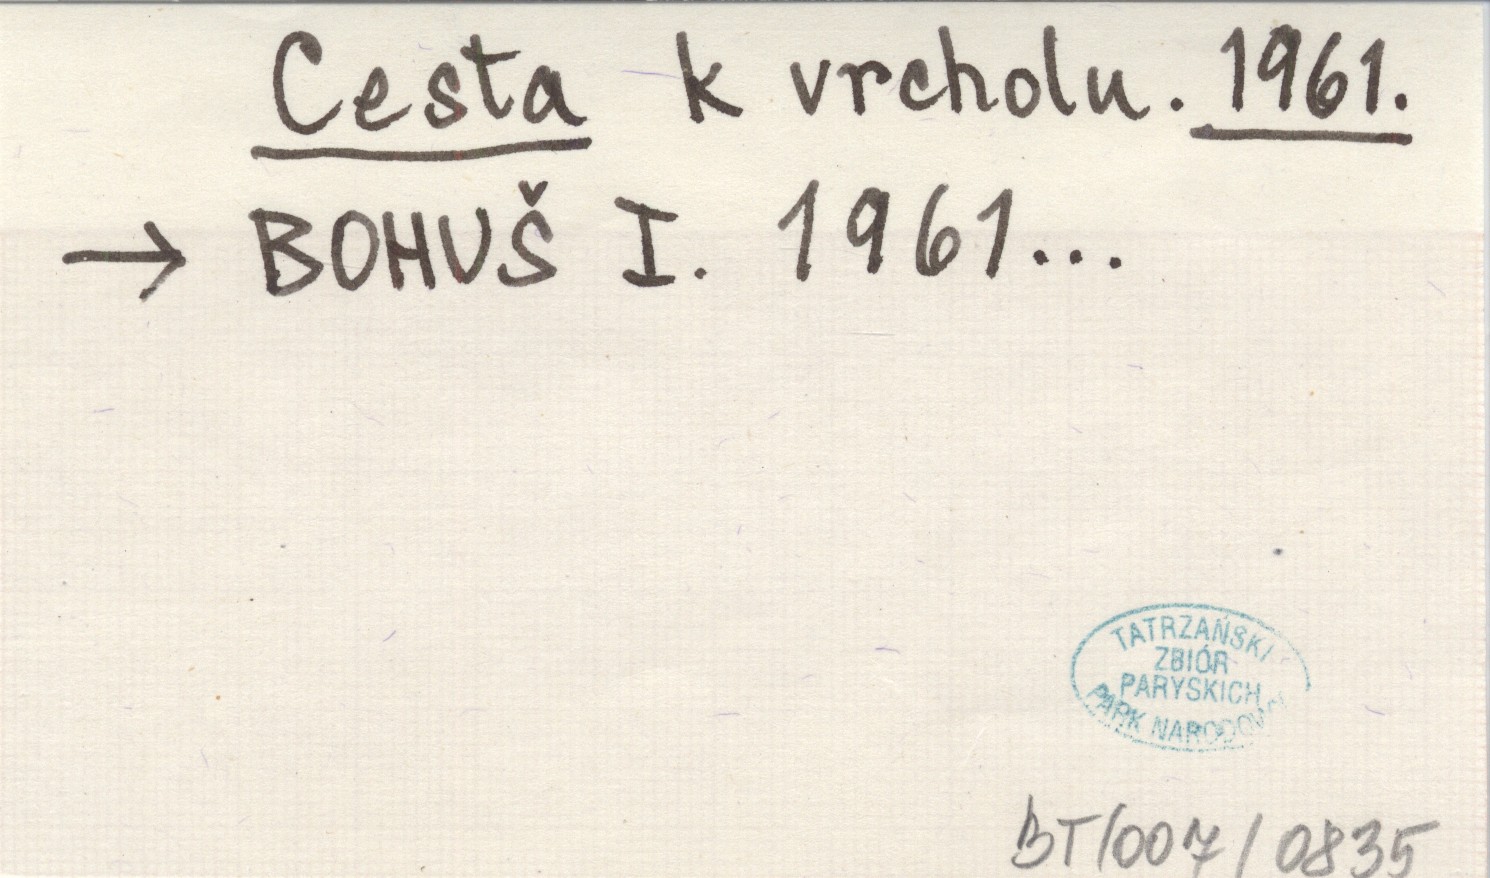 Cesta k vrcholu. 1961.
→ BOHUŠ I. 1961...
TATRZAŃSKI
ZBIÓR
PARYSKICH
PARK NARODOWY
BT/007/0835